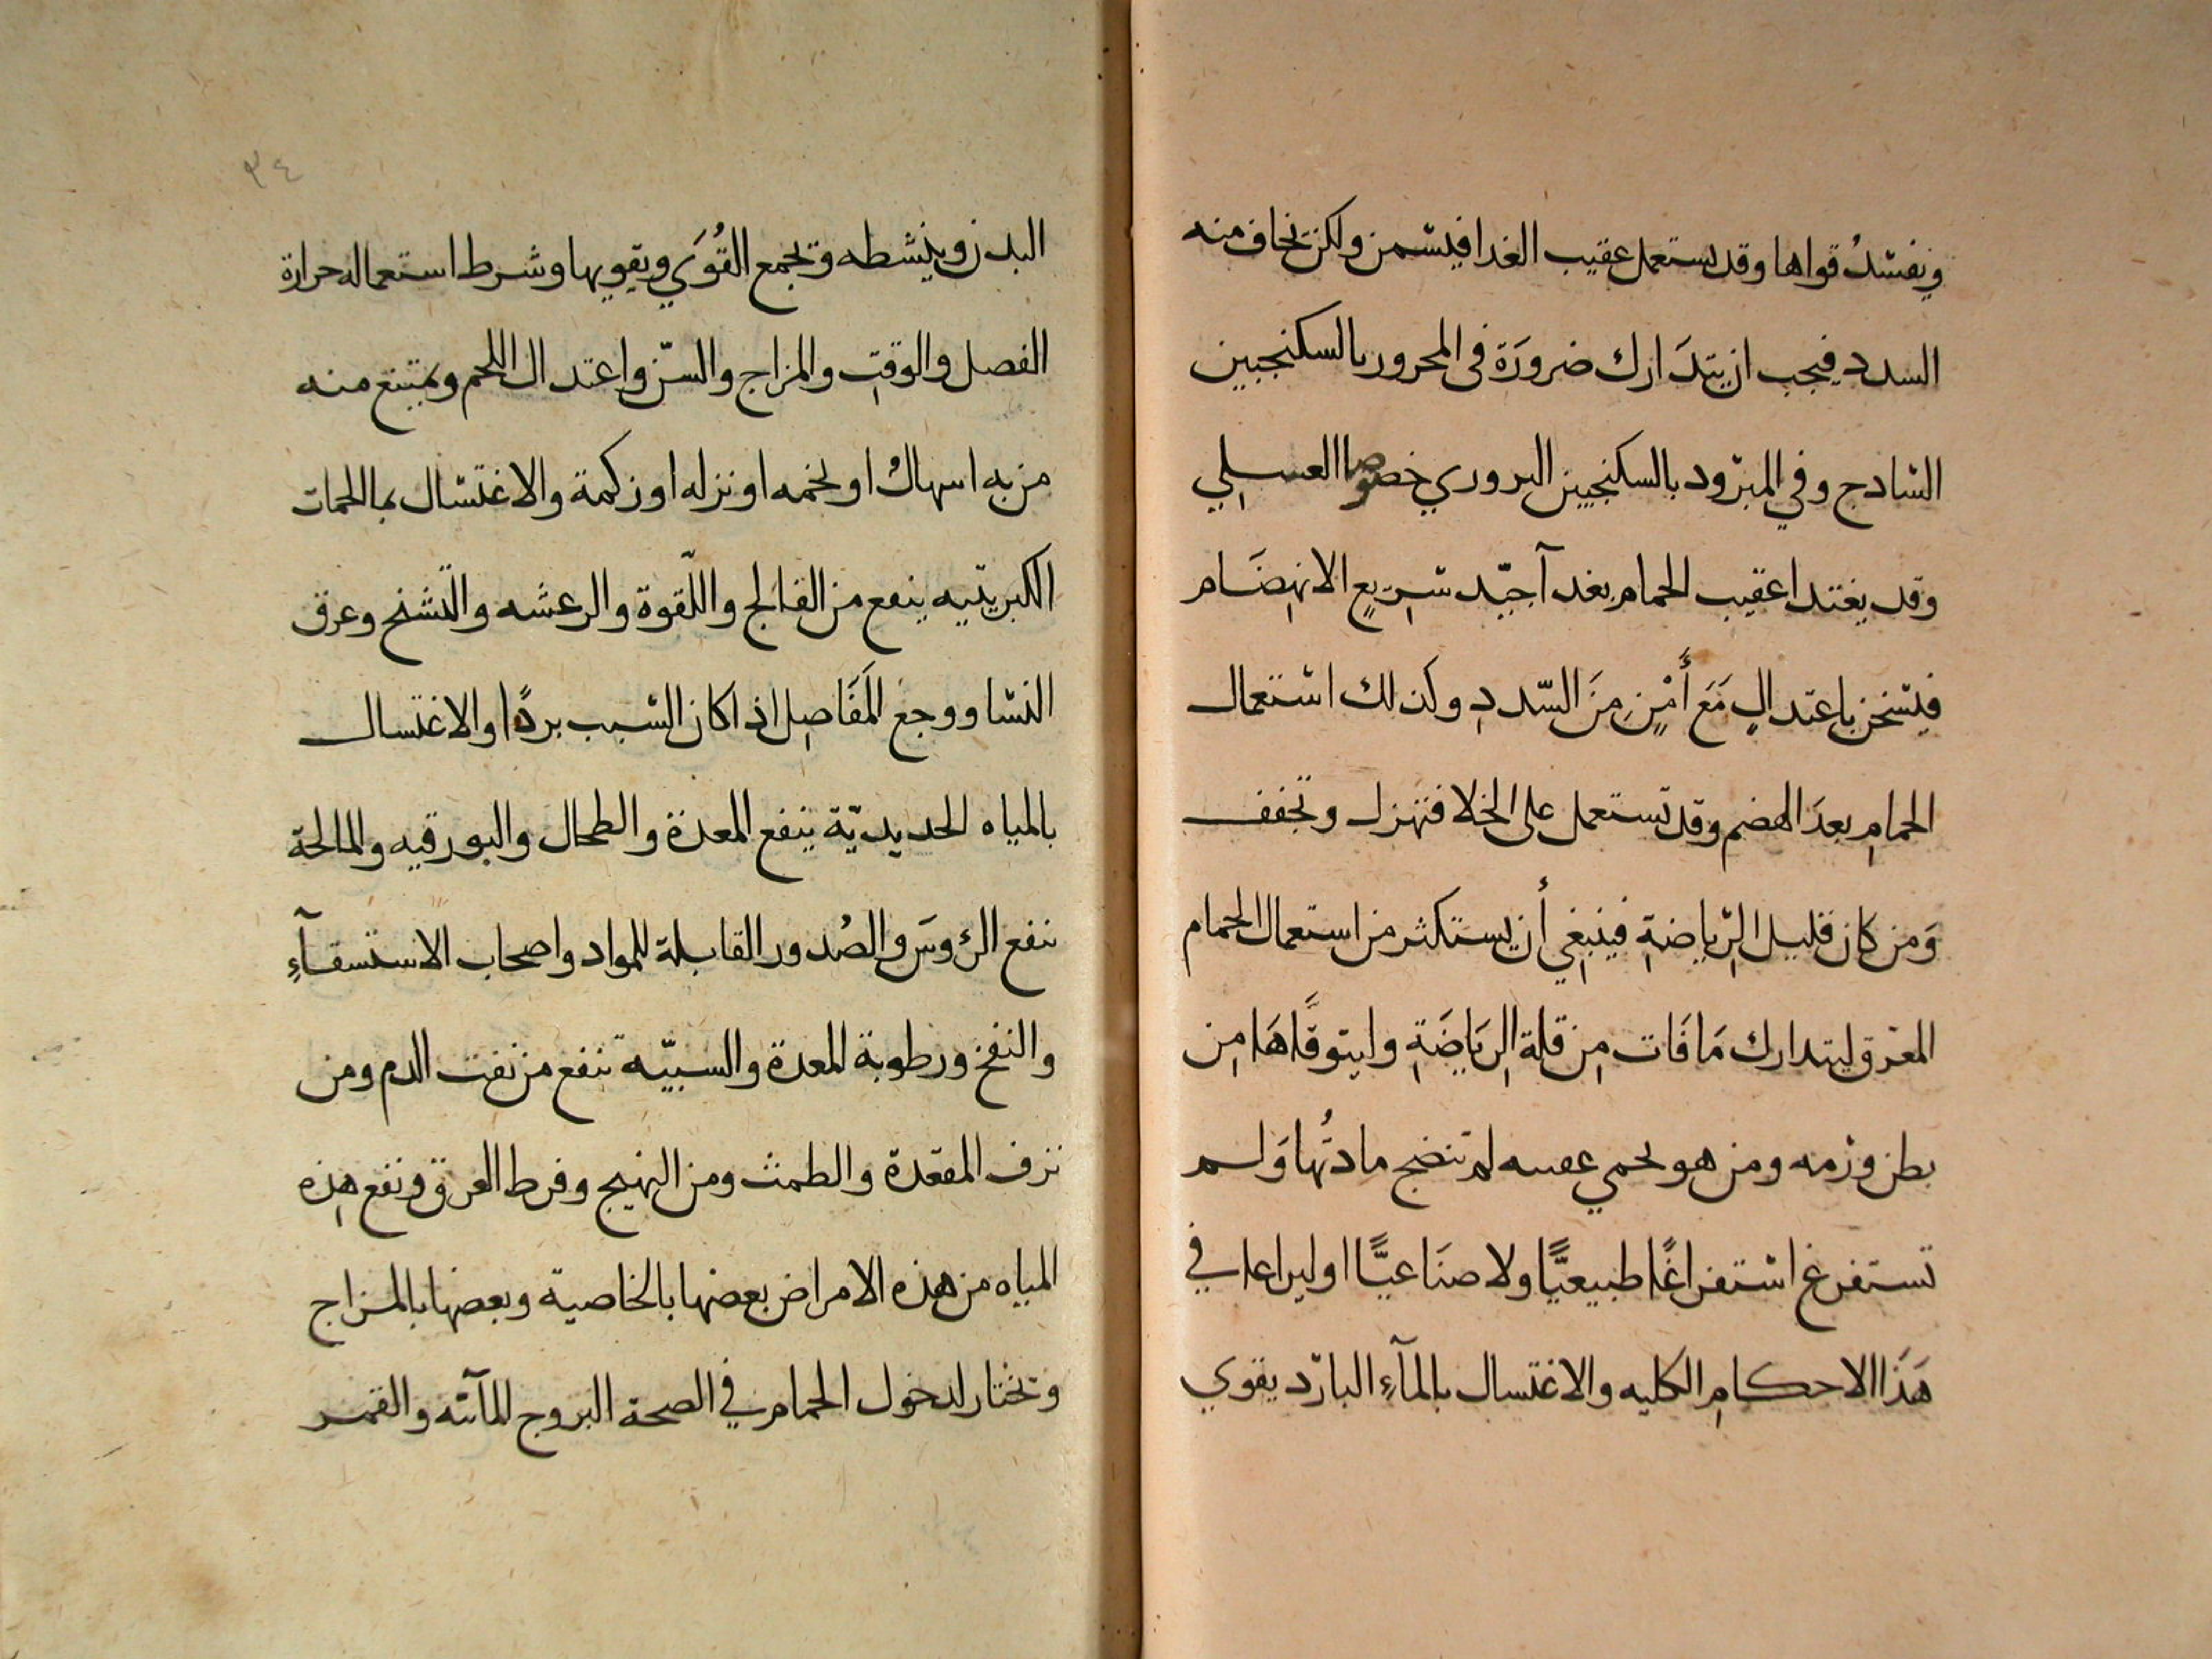 ويفسدُ قواها وقد يستعمل عقيب الغدا فيسمن ولكن يخاف منه
السدد فيجب ان يتدَارك ضرورَة فى المحرور بالسكنجبين
السادج وفي المبرود بالسكنجبين البروري خصوصا العسلي
وقد يغتدا عقيب الحمام بغدآ جيّد سَرِيعِ الانهِضَام
فيسخن باعتدالٍ مَعَ أَمْنٍ مِنَ السّددِ وكذلك استعمال
الحمامِ بعدَ الهضم وقد تستعمل على الخلا فتهزل وتجفف
وَمن كان قليل الرِّياضةِ فينبَغِي أن يستكثر من استعمال الحمام
المعرق ليتدارك مَا فَات مِن قلة الرِيَاضَةِ وليتوقَّاهَا مِن
بطن ورمه ومن هو بحمي عفنه لم تنضج مادتُها وَلم
تستفرغ استفراغًا طبيعيًّا ولا صنَاعيًّا او ليراعا في
هَذا الاحكامِ الكليه والاغتسال بالمآءِ البارد يقوي
٣٤
البدن وينشطه وتجمع القُوَي ويقويها وشرط استعماله حرارة
الفصل والوقتِ والمزاج والسّن واعتدال اللحم ويمتنع منه
من به اسهالٌ او تخمه او نزله او زكمة والاغتسال بمالحمات
الكبريتيه ينفع من الفالج واللّقوة والرعشه والتشنح وعرق
النسا ووجع المَفَاصِل اذا كان السبب بردًا والاغتسال
بالمياه الحديديّة ينفع المعدة والطحال والبورقيه والمالحة
تنفع الرؤسَ والصُدور القابلة للمواد واصحاب الاستسقآءِ
والنفخ ورطوبة المعدة والسبيّه تنفع من نفت الدم ومن
نزف المقعدة والطمث ومن التهيج وفرط العرق ونفع هِذه
المياه من هذه الامراض بعضها بالخاصية وبعضها بالمزاج
وتختار لدخول الحمام في الصحة البروج المآئيه والقمر